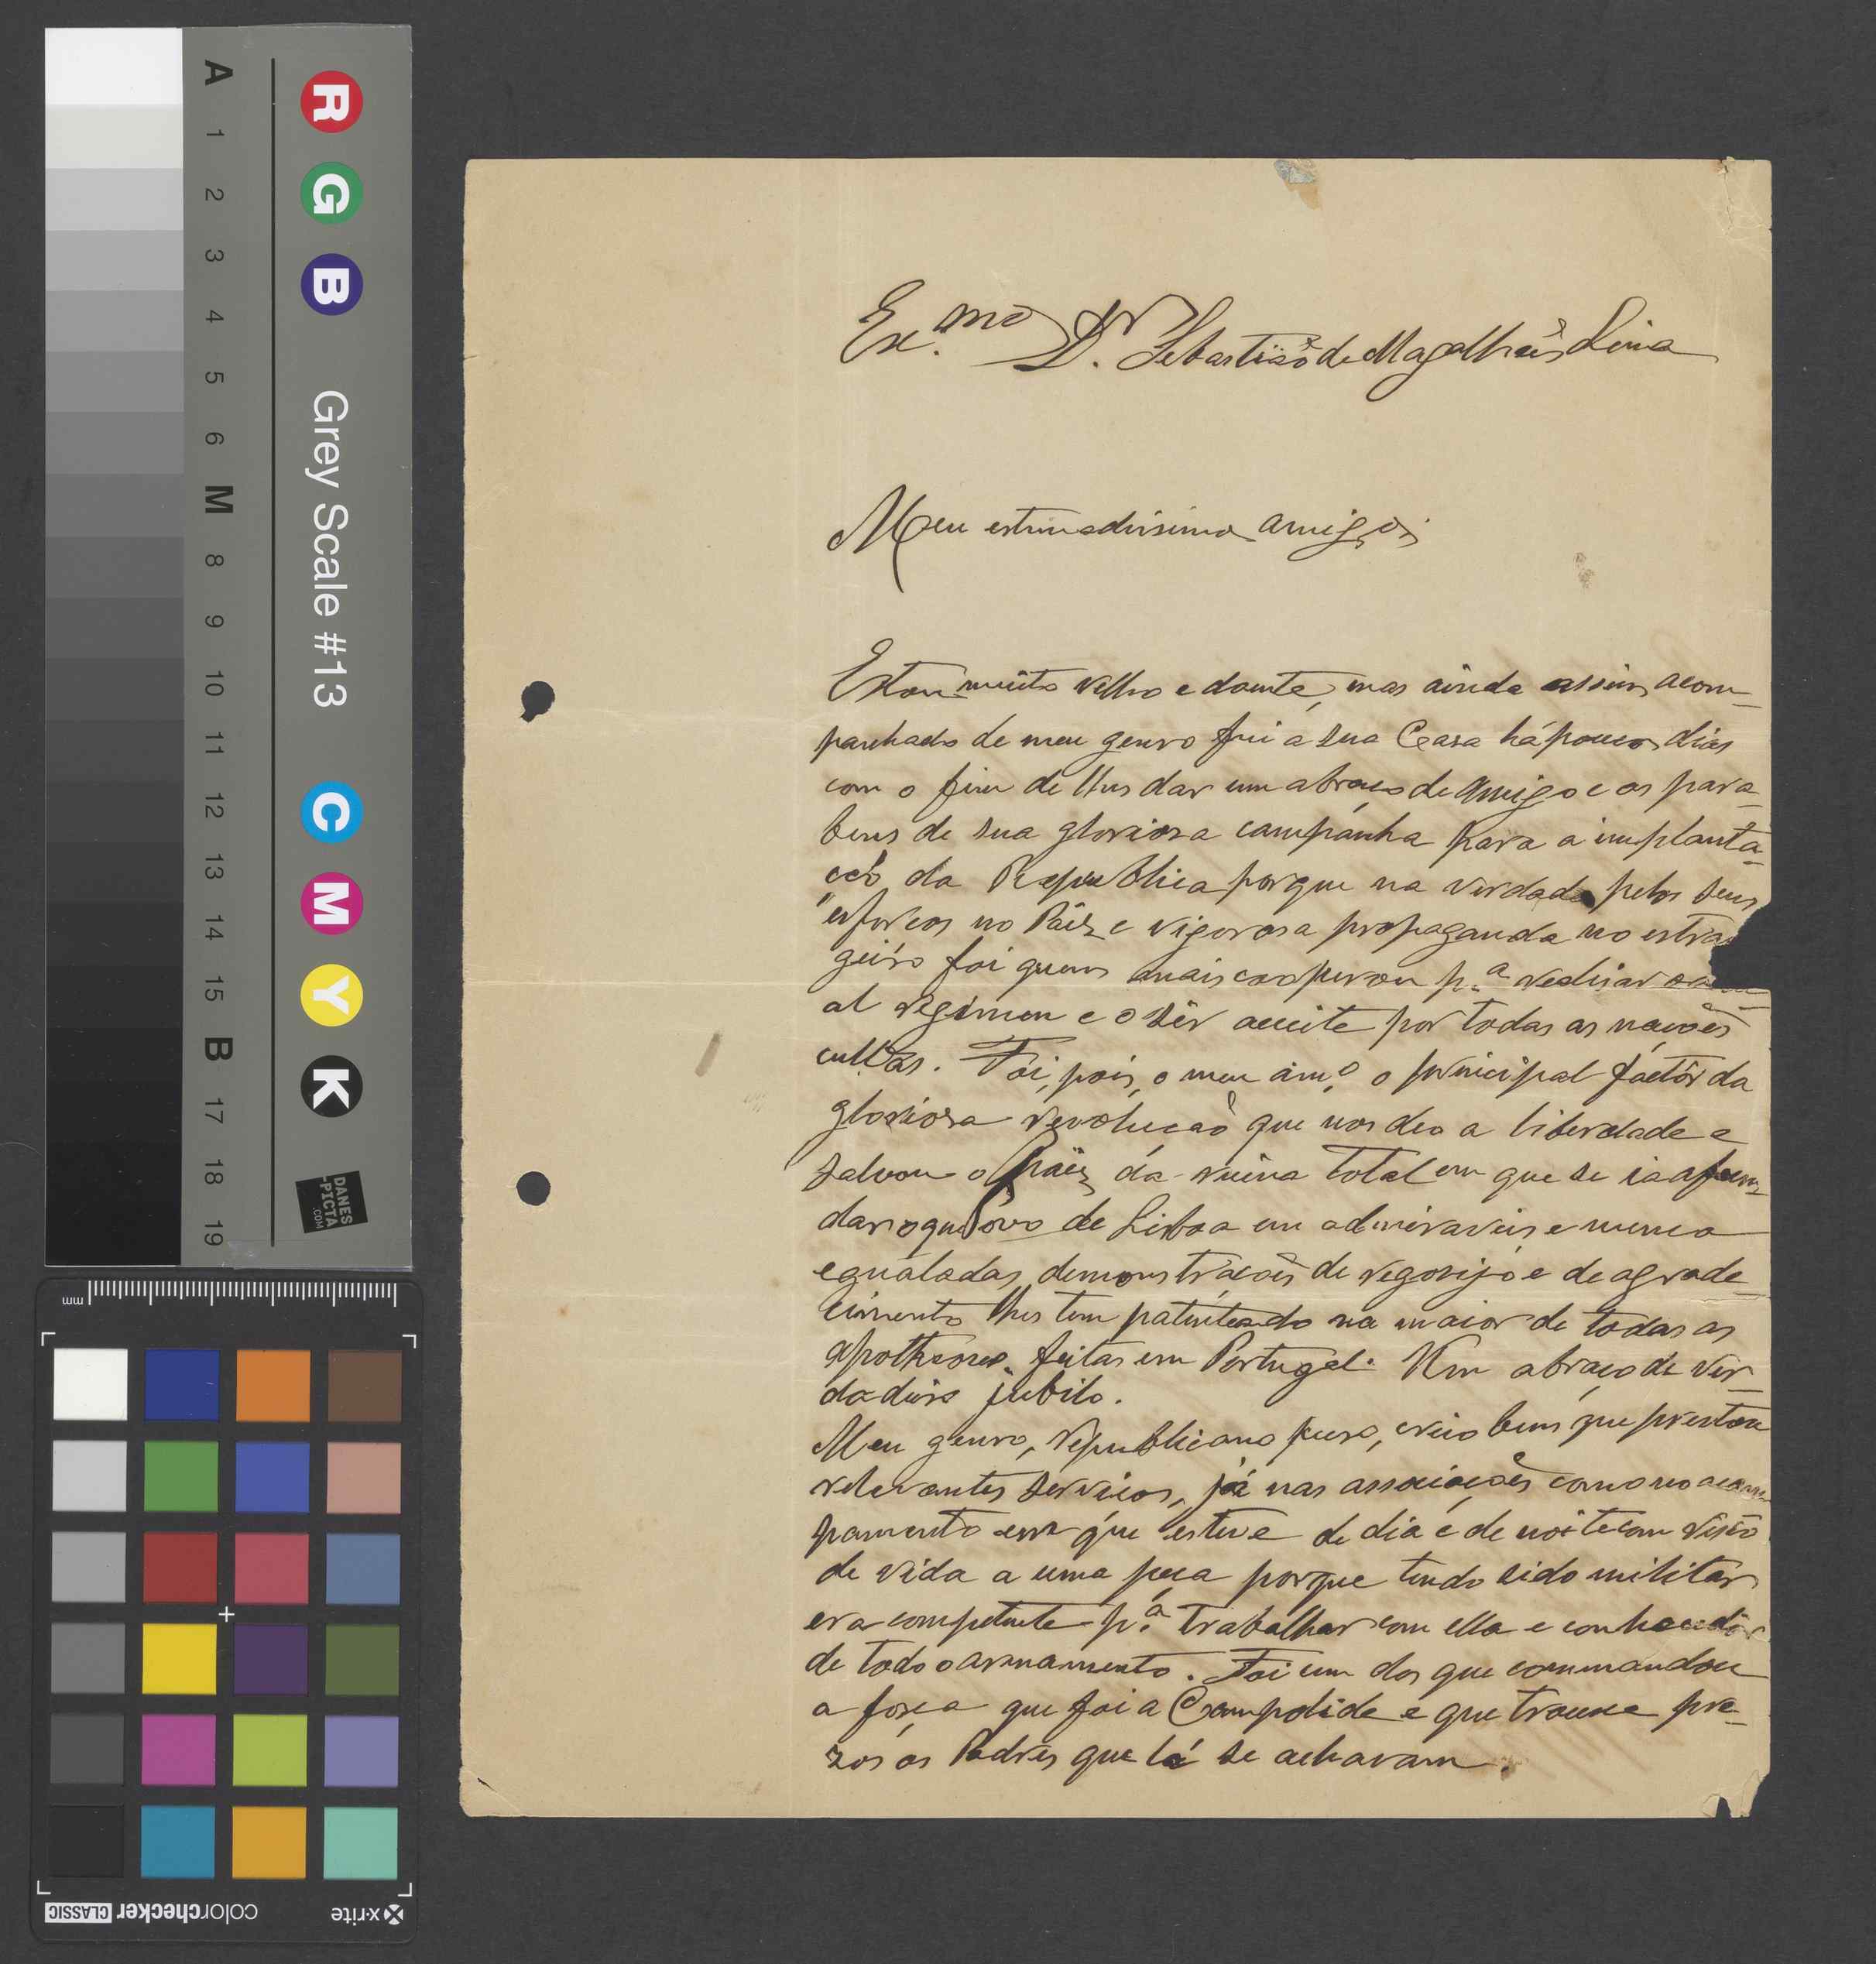 A 1 2 3 4 5 6 M 8 9 10 11 12 13 14 15 B 17 18 19
R G B Grey Scale #13 C M Y K
DANES
-PICTA
.COM
mm
x-rite colorchecker CLASSIC
Ex.mo Dr. Sebastião de Magalhães Lima
Meu estimadissimo amigo;
Estou muito velho e doente, mas ainda assim, acom-
panhado de meu genro fui a sua Casa há poucos dias
com o fim de lhes dar um abraço de amigo e os para-
bens de sua gloriosa campanha para a implanta-
ção da Republica porque na verdade pelos seus
esforços no Paiz e vigorosa propaganda no estran
geiro foi quem mais cooperou p.a
al regimen e o sêr acceite por todas as nações
cultas. Foi, pois, o meu am.o o principal factôr da
gloriosa revolução que nos deo a liberdade e
salvou o paiz da ruina total em que se ia afun-
dar o que o povo de Lisboa em admiraveis e nunca
egualadas, demonstrações de regosijo e de agrade-
cimento lhes tem patenteado na maior de todas as
apotheoses feitas em Portugal. Um abraço de ver-
dadeiro jubilo.
Meu genro, republicano puro, creio bem que prestou
relevantes serviços, já nas associações como no acam
pamento em que esteve de dia e de noite com risco
de vida a uma peça porque tendo sido militar
era competente p.a trabalhar com ella e conhecedor
de todo o armamento. Foi um dos que commandou
a força que foi a Campolide e que trouxe pre-
zos os Padres que lá se achavam.